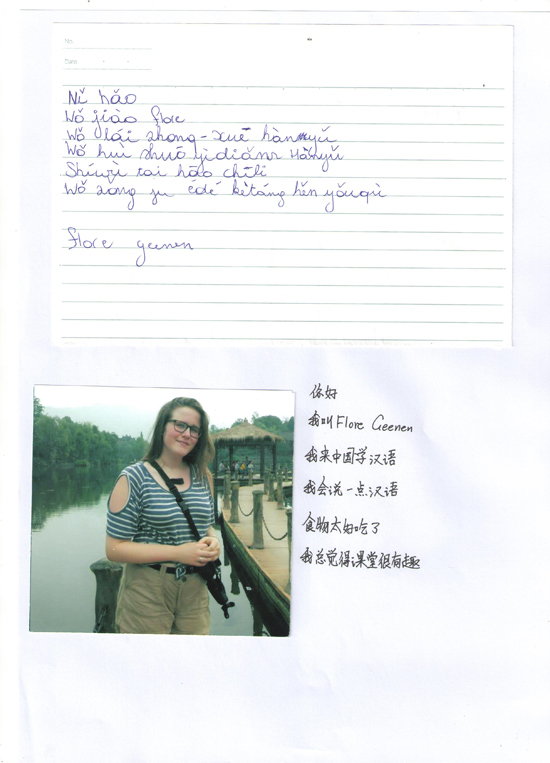 No.
Date
Nǐ hǎo
Wǒ jiào flore
Wǒ lái zhong-xué hànyǔ
Wǒ huì shuō yìdiǎnr Hànyǔ
Shíwù tai hǎo chīli
Wǒ zong ju édé kètáng hěn yǒuqù
flore geenen
你好
我叫Flore Geenen
我来中国学汉语
我会说一点汉语
食物太好吃了
我总觉得课堂很有趣